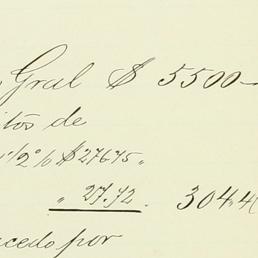 Gral $ 5500-
tos de
1/2% $ 276.75 "
" 27.72. 304.4
cedo por